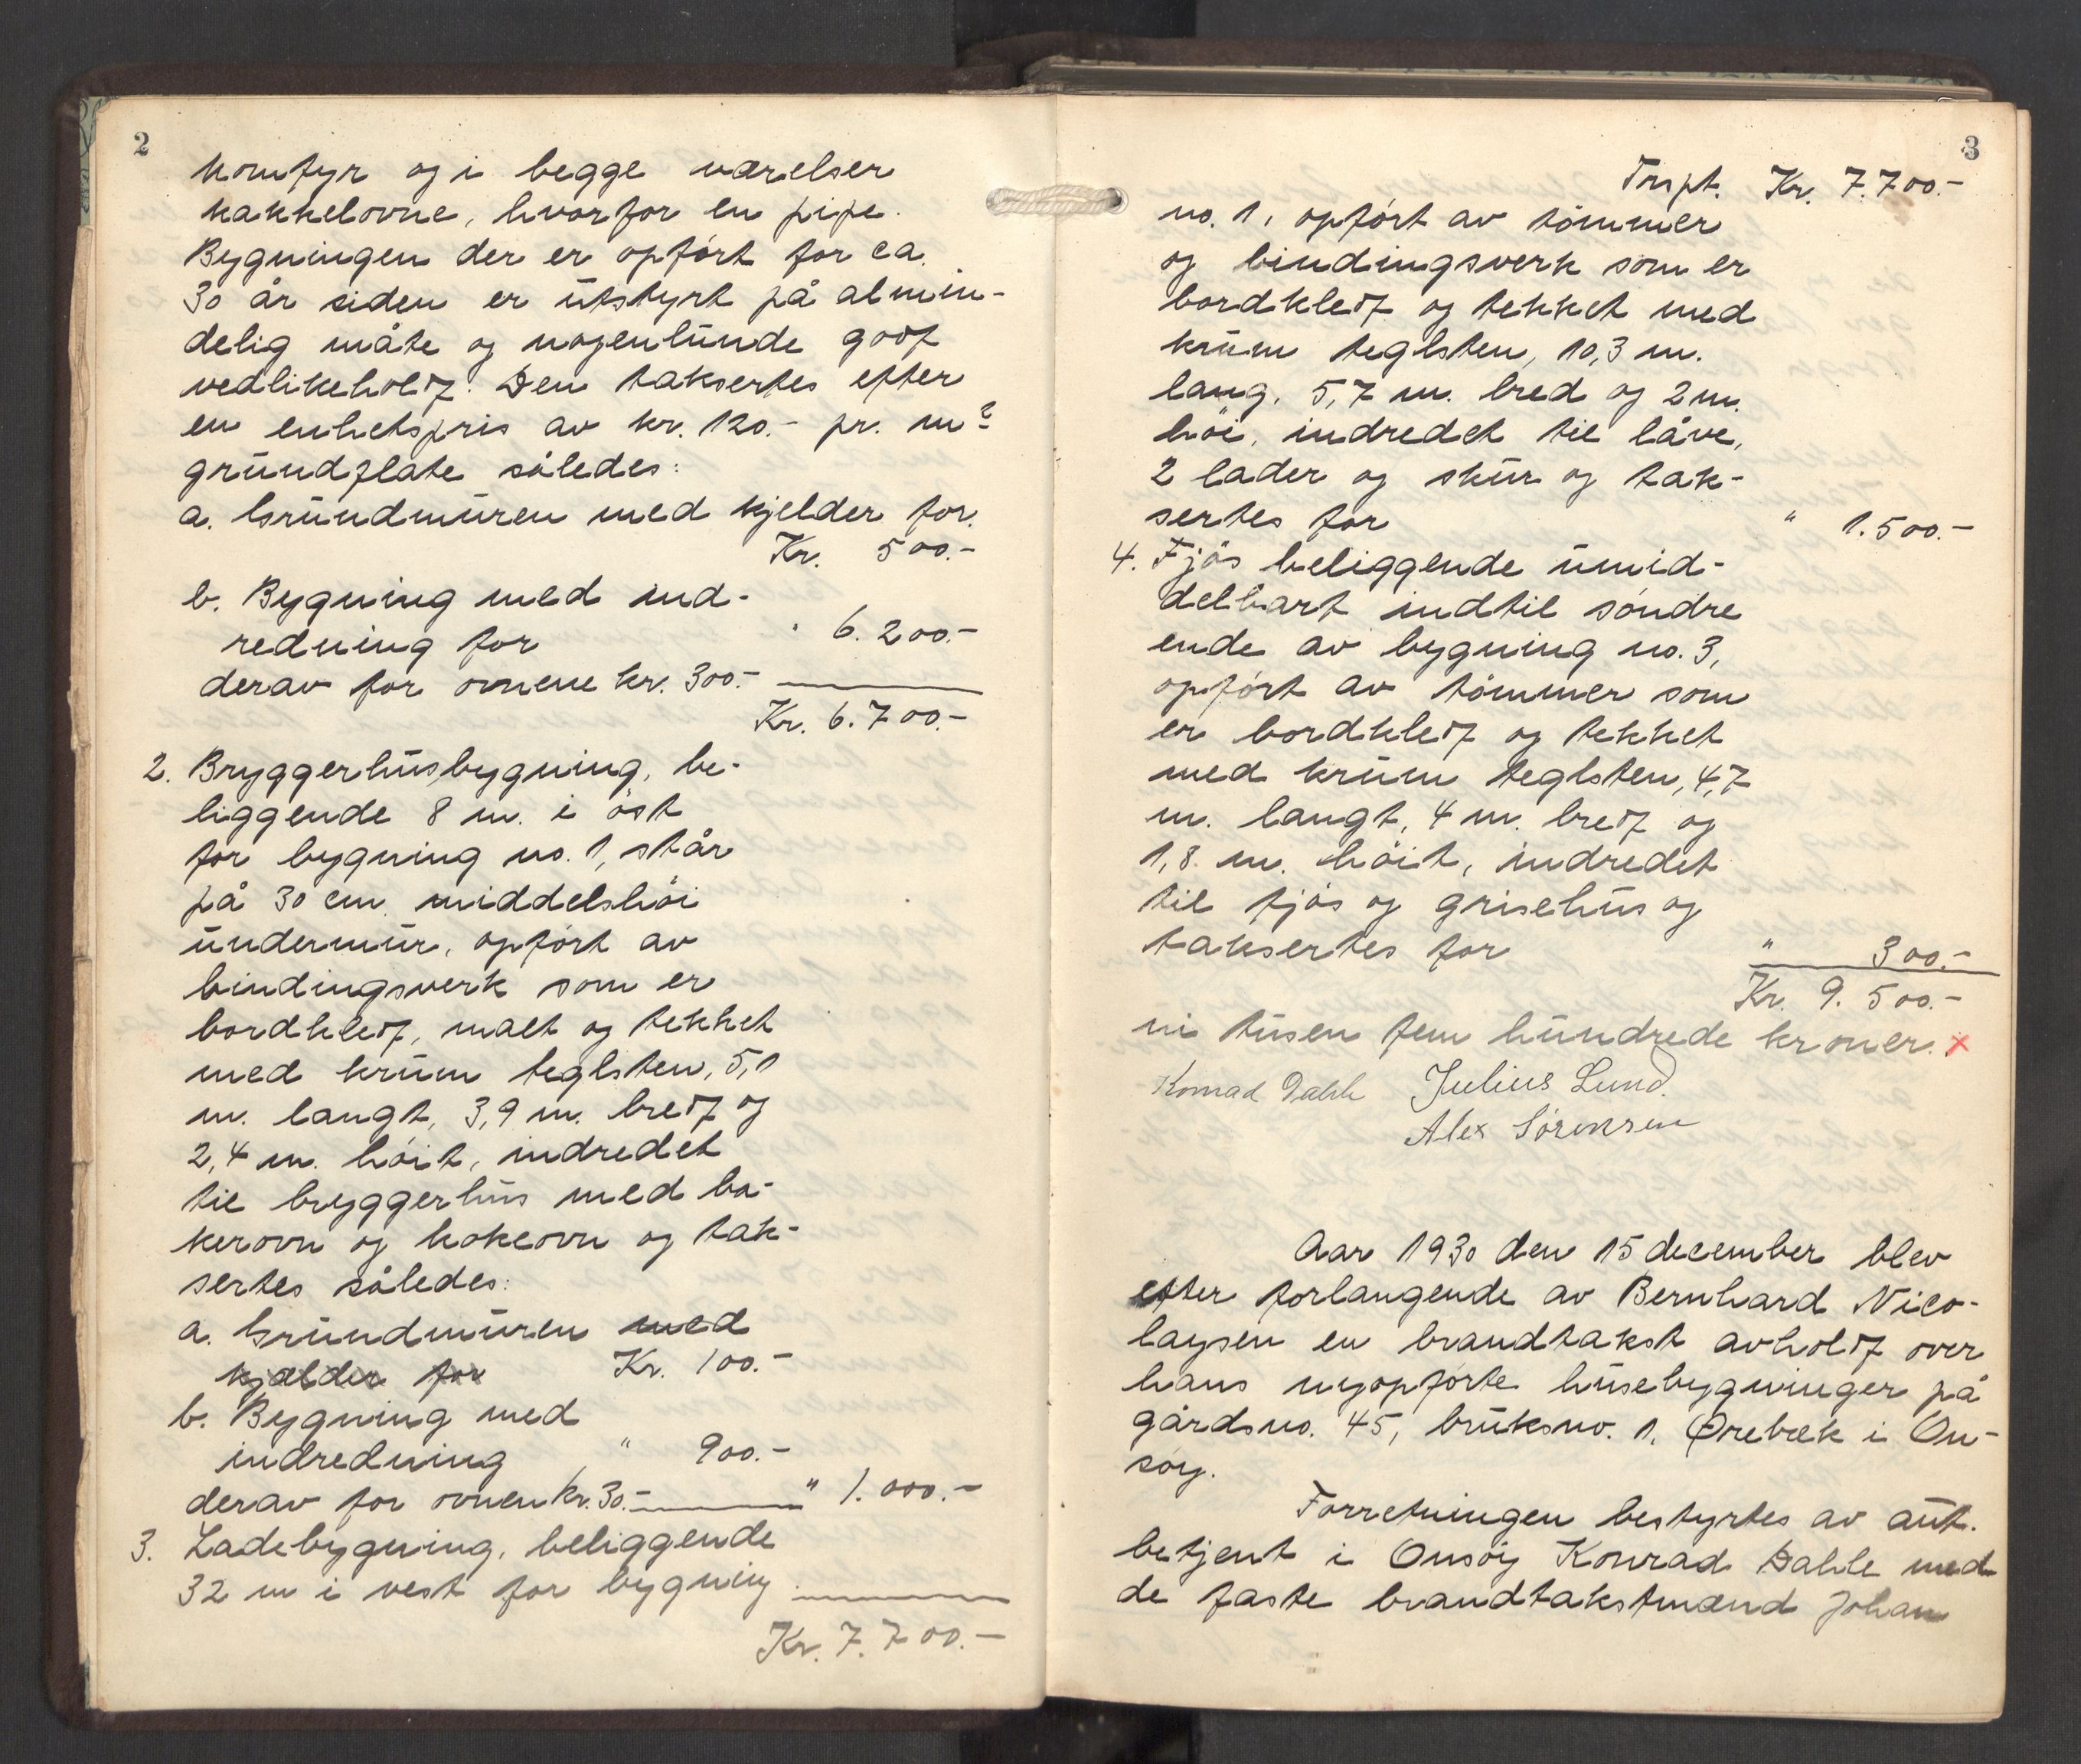 2
komfyr og i begge værelser
kakkelovne, hvorfor en pipe.
Bygningen der er opført for ca.
30 år siden er utstyrt på almin-
delig måte og nogenlunde godt
vedlikeholdt. Den taksertes efter
en enhetspris av kr. 120.- pr. m2
grundflate således:
a. Grundmuren med kjelder for.
Kr. 500.-
b. Bygning med ind-
redning for " 6.200.-
derav for ovnene kr. 300.-
Kr. 6.700.-
2. Bryggerhusbygning, be-
liggende 8 m. i øst
for bygning no. 1, står
på 30 cm middelshöi
undermur, opført av
bindingsverk som er
bordkledt, malt og tekket
med krum teglsten, 5,1
m. langt, 3,9 m. bredt og
2,4 m. höit, indredet
til bryggerhus med ba-
kerovn og kokeovn og tak-
sertes således:
a. Grundmuren med
kjælder for Kr. 100.-
b. Bygning med
indredning " 900.-
derav for ovnen kr. 30.- " 1.000.-
3. Ladebygning, beliggende
32 m i vest for bygning
Kr. 7.700.-
3
Trspt. Kr. 7.700.-
no. 1, opført av tömmer
og bindingsverk som er
bordkledt og tekket med
krum teglsten, 10,3 m.
lang, 5,7 m. bred og 2 m.
höi, indredet til låve,
2 lader og skur og tak-
sertes for " 1.500.-
4. Fjös beliggende umid-
delbart indtil söndre
ende av bygning no. 3,
opført av tömmer som
er bordkledt og tekket
med krum teglsten, 4,7
m. langt, 4 m. bredt og
1,8 m. höit, indredet
til fjös og grisehus og
taksertes for " 300.-
Kr. 9.500.-
ni tusen fem hundrede kroner. x
Konrad Dahle Julius Lund.
Alex Sørensen
Aar 1930 den 15 december blev
efter forlangende av Bernhard Nico-
laysen en brandtakst avholdt over
hans nyopførte husebygninger på
gårdsno. 45, bruksno. 1. Ørebæk i On-
søy.
Forretningen bestyrtes av aut.
betjent i Onsøy Konrad Dahle med
de faste brandtakstmænd Johan